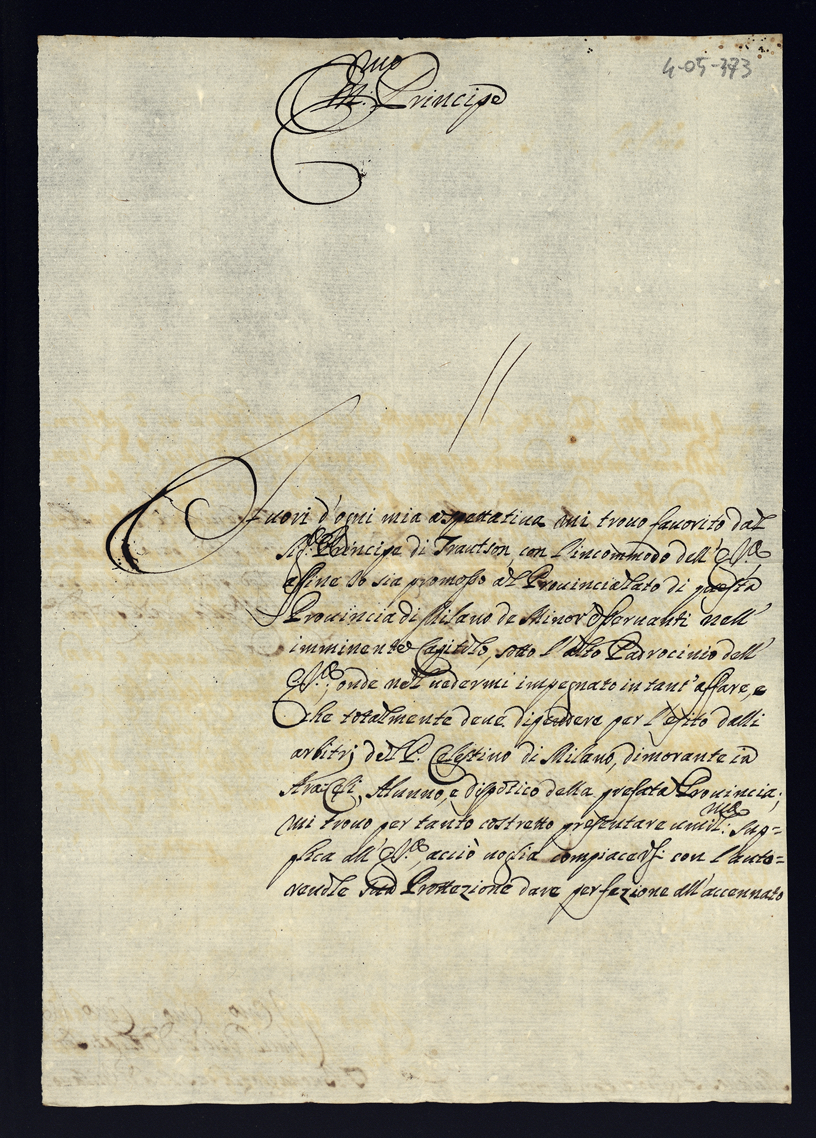 4-05-373
Em.mo Principe
Fuori d'ogni mia aspettatiua mi trouo fauorito dal
Sig.r Principe di Trautson con l'incommodo dell'
affine io sia promosso al Prouincialato di questa
Prouincia di Milano de Minori Osseruanti nell'
imminente Capitolo, sotto l'alto Padrocinio dell'
onde nel uedermi impegnato in tant'affare, e
che totalmente deue dipendere per l'esito dalli
arbitrj del P. Celestino di Milano, dimorante in
Ara: Celi, Alunno, e dispotico della prefata Prouincia,
mi trouo per tanto costretto presentare umil.ma Sup=
plica all' acciò uoglia compiacersi con l'auto=
reuole sua Prottezione dare perfezione all'accennato